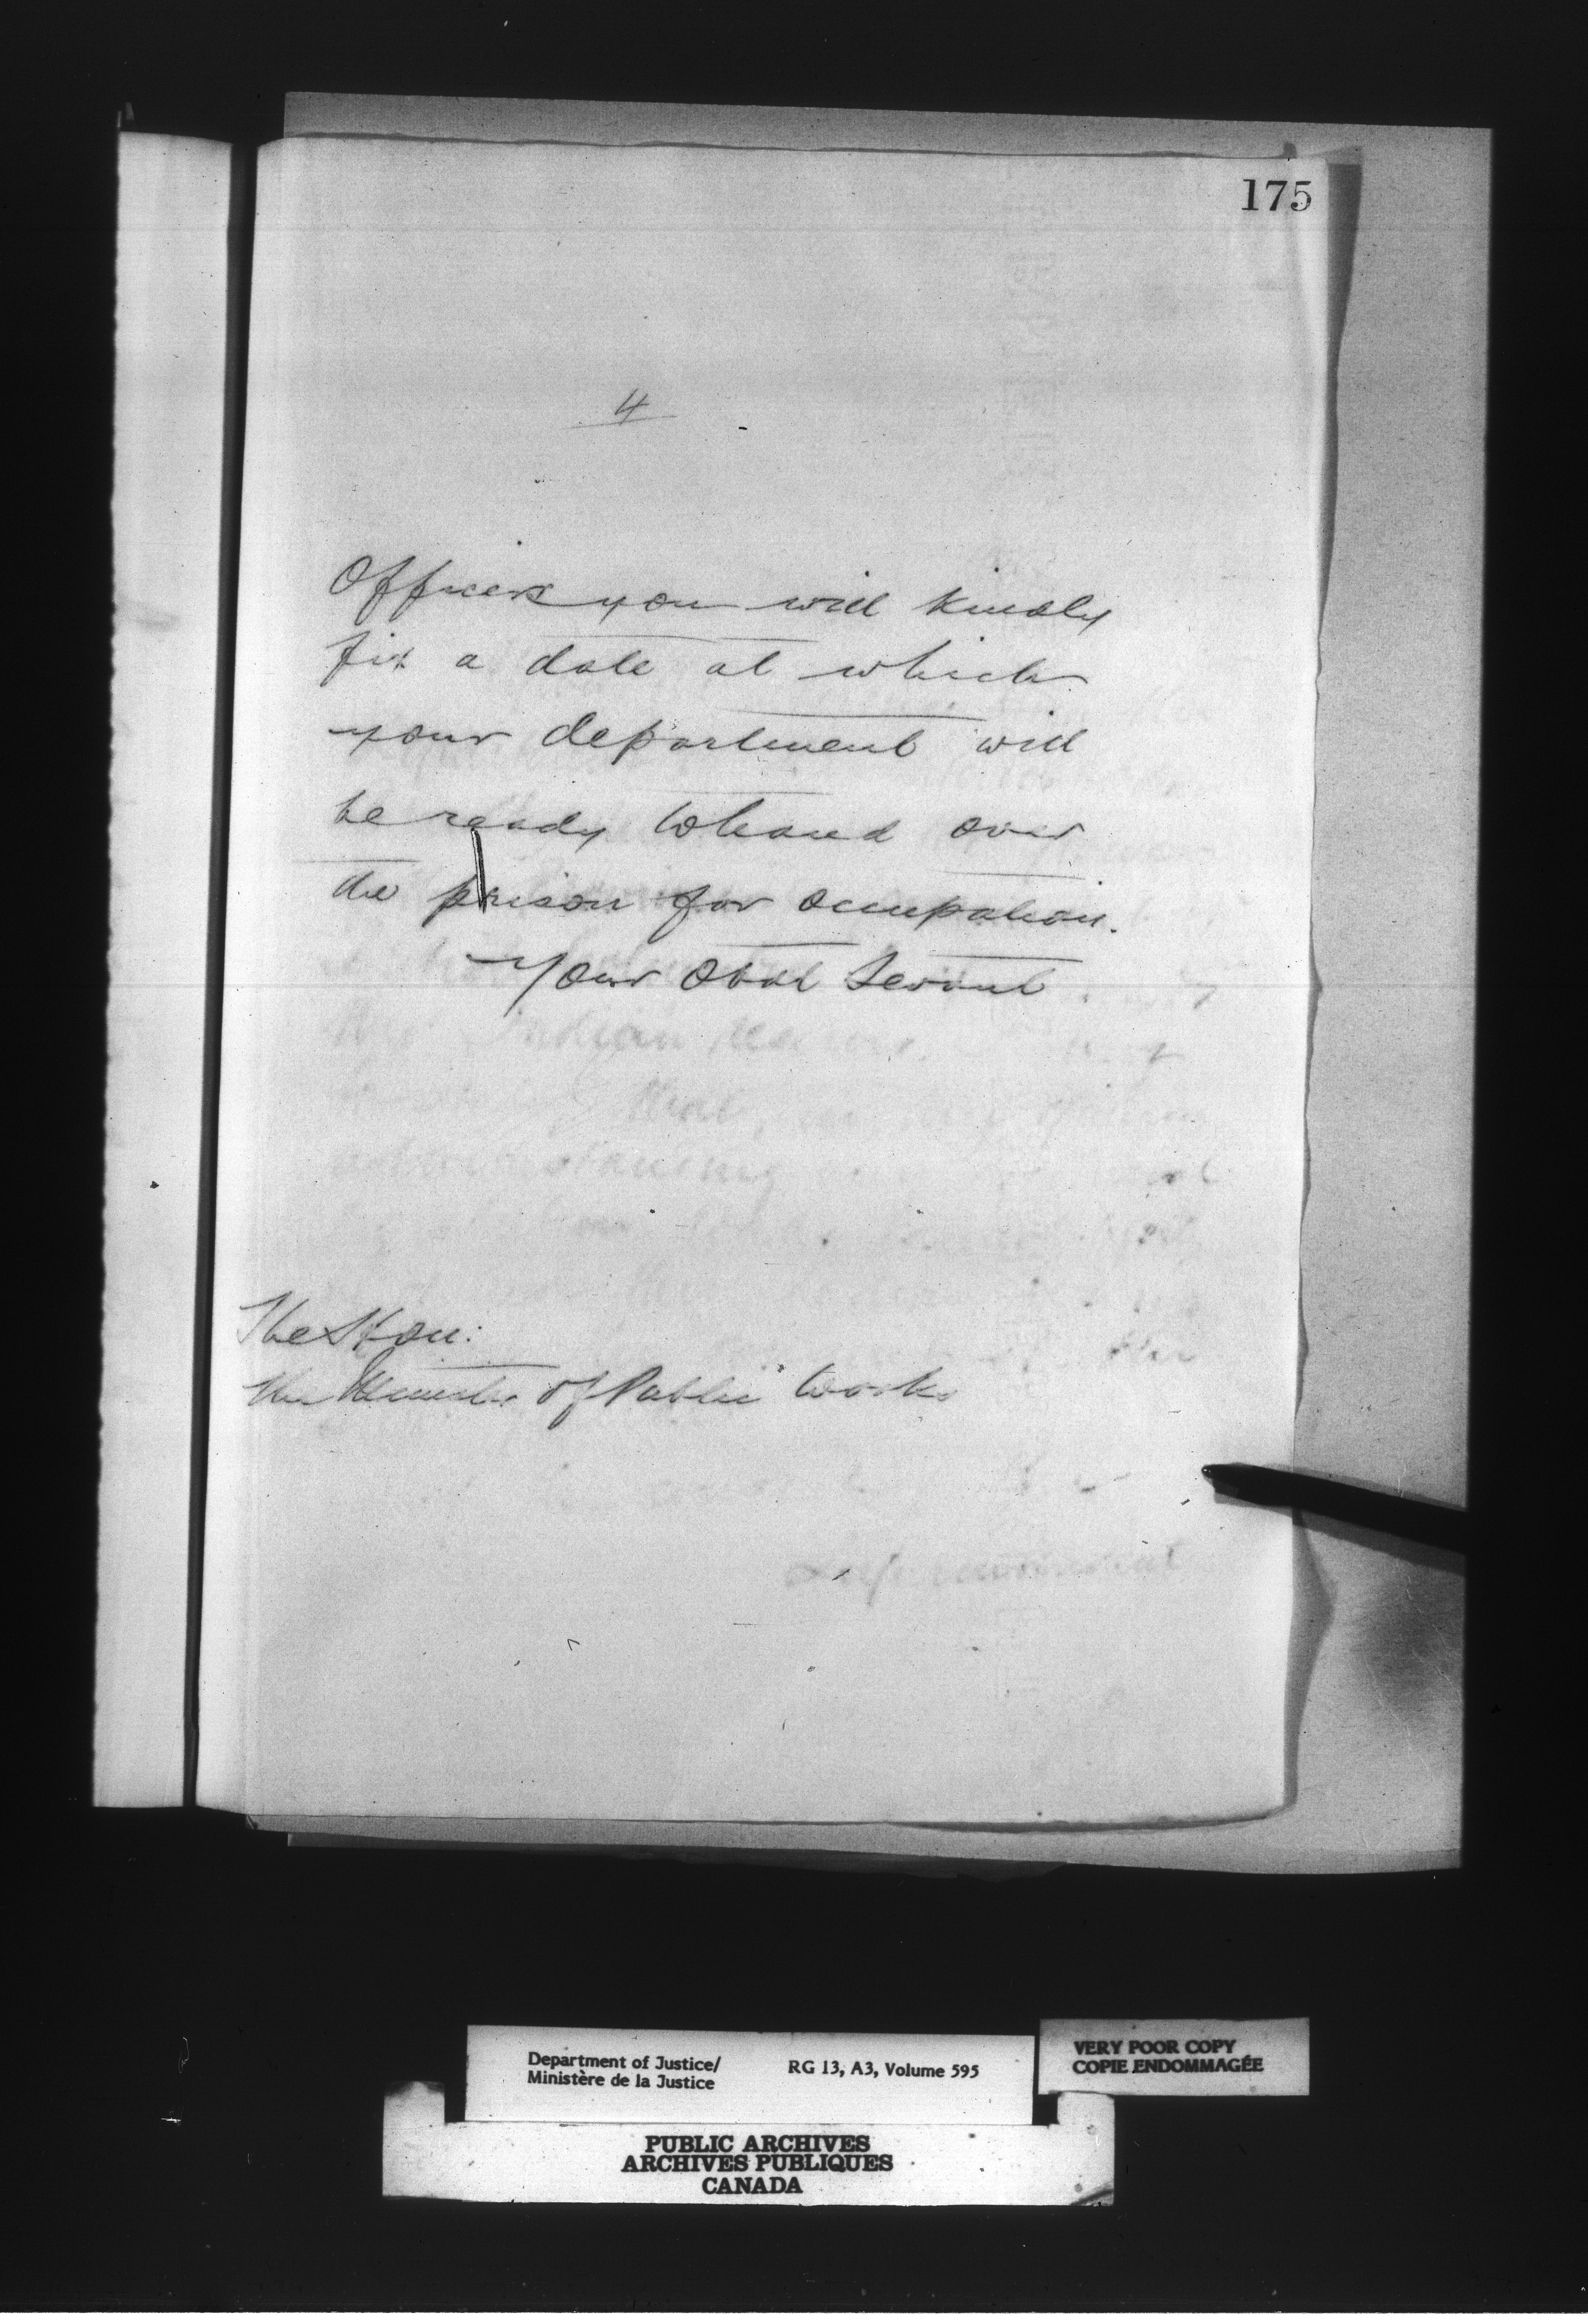 175
4
Officers you will kindly
fix a date at which
your department will
be ready to hand over
the prison for occupation.
Your Obdt Servant
The Hon:
The Minister of Public Works
Department of Justice/
Ministère de la Justice
RG 13, A3, Volume 595
VERY POOR COPY
COPIE ENDOMMAGÉE
PUBLIC ARCHIVES
ARCHIVES PUBLIQUES
CANADA